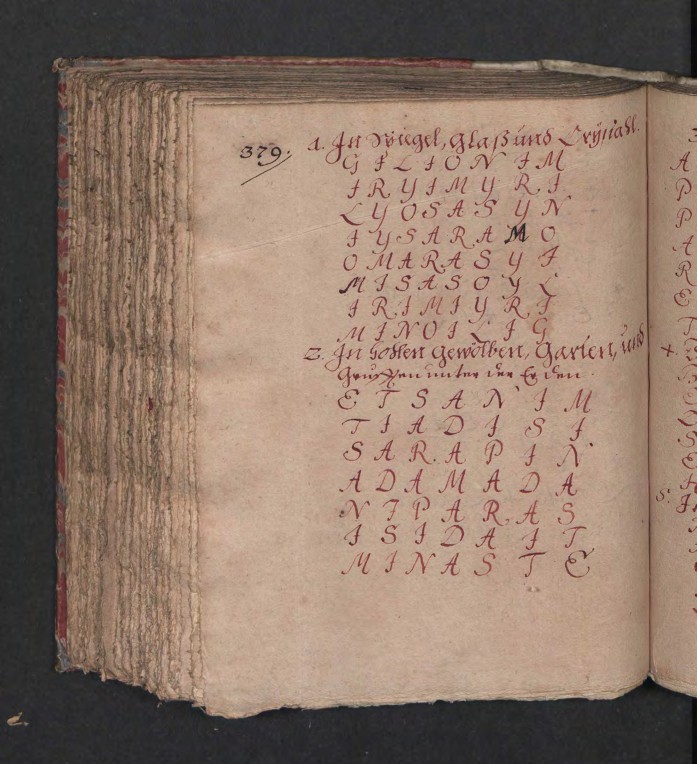 379.
1. In Spiegel, Glaß und Crystahl.
G I L I O N I M
I R Y I M Y R I
L Y O S A S Y N
I Y S A R A M O
O M A R A S Y I
M I S A S O Y L
I R I M I Y R I
M I N O I L I G
2. In Hohlen Gewölben, Garten, und
unter der Erden.
E T S A N I M
T I A D I S I
S A R A P I N
A D A M A D A
N I P A R A S
I S I D A I T
M I N A S T E
A
P
P
A
R
E